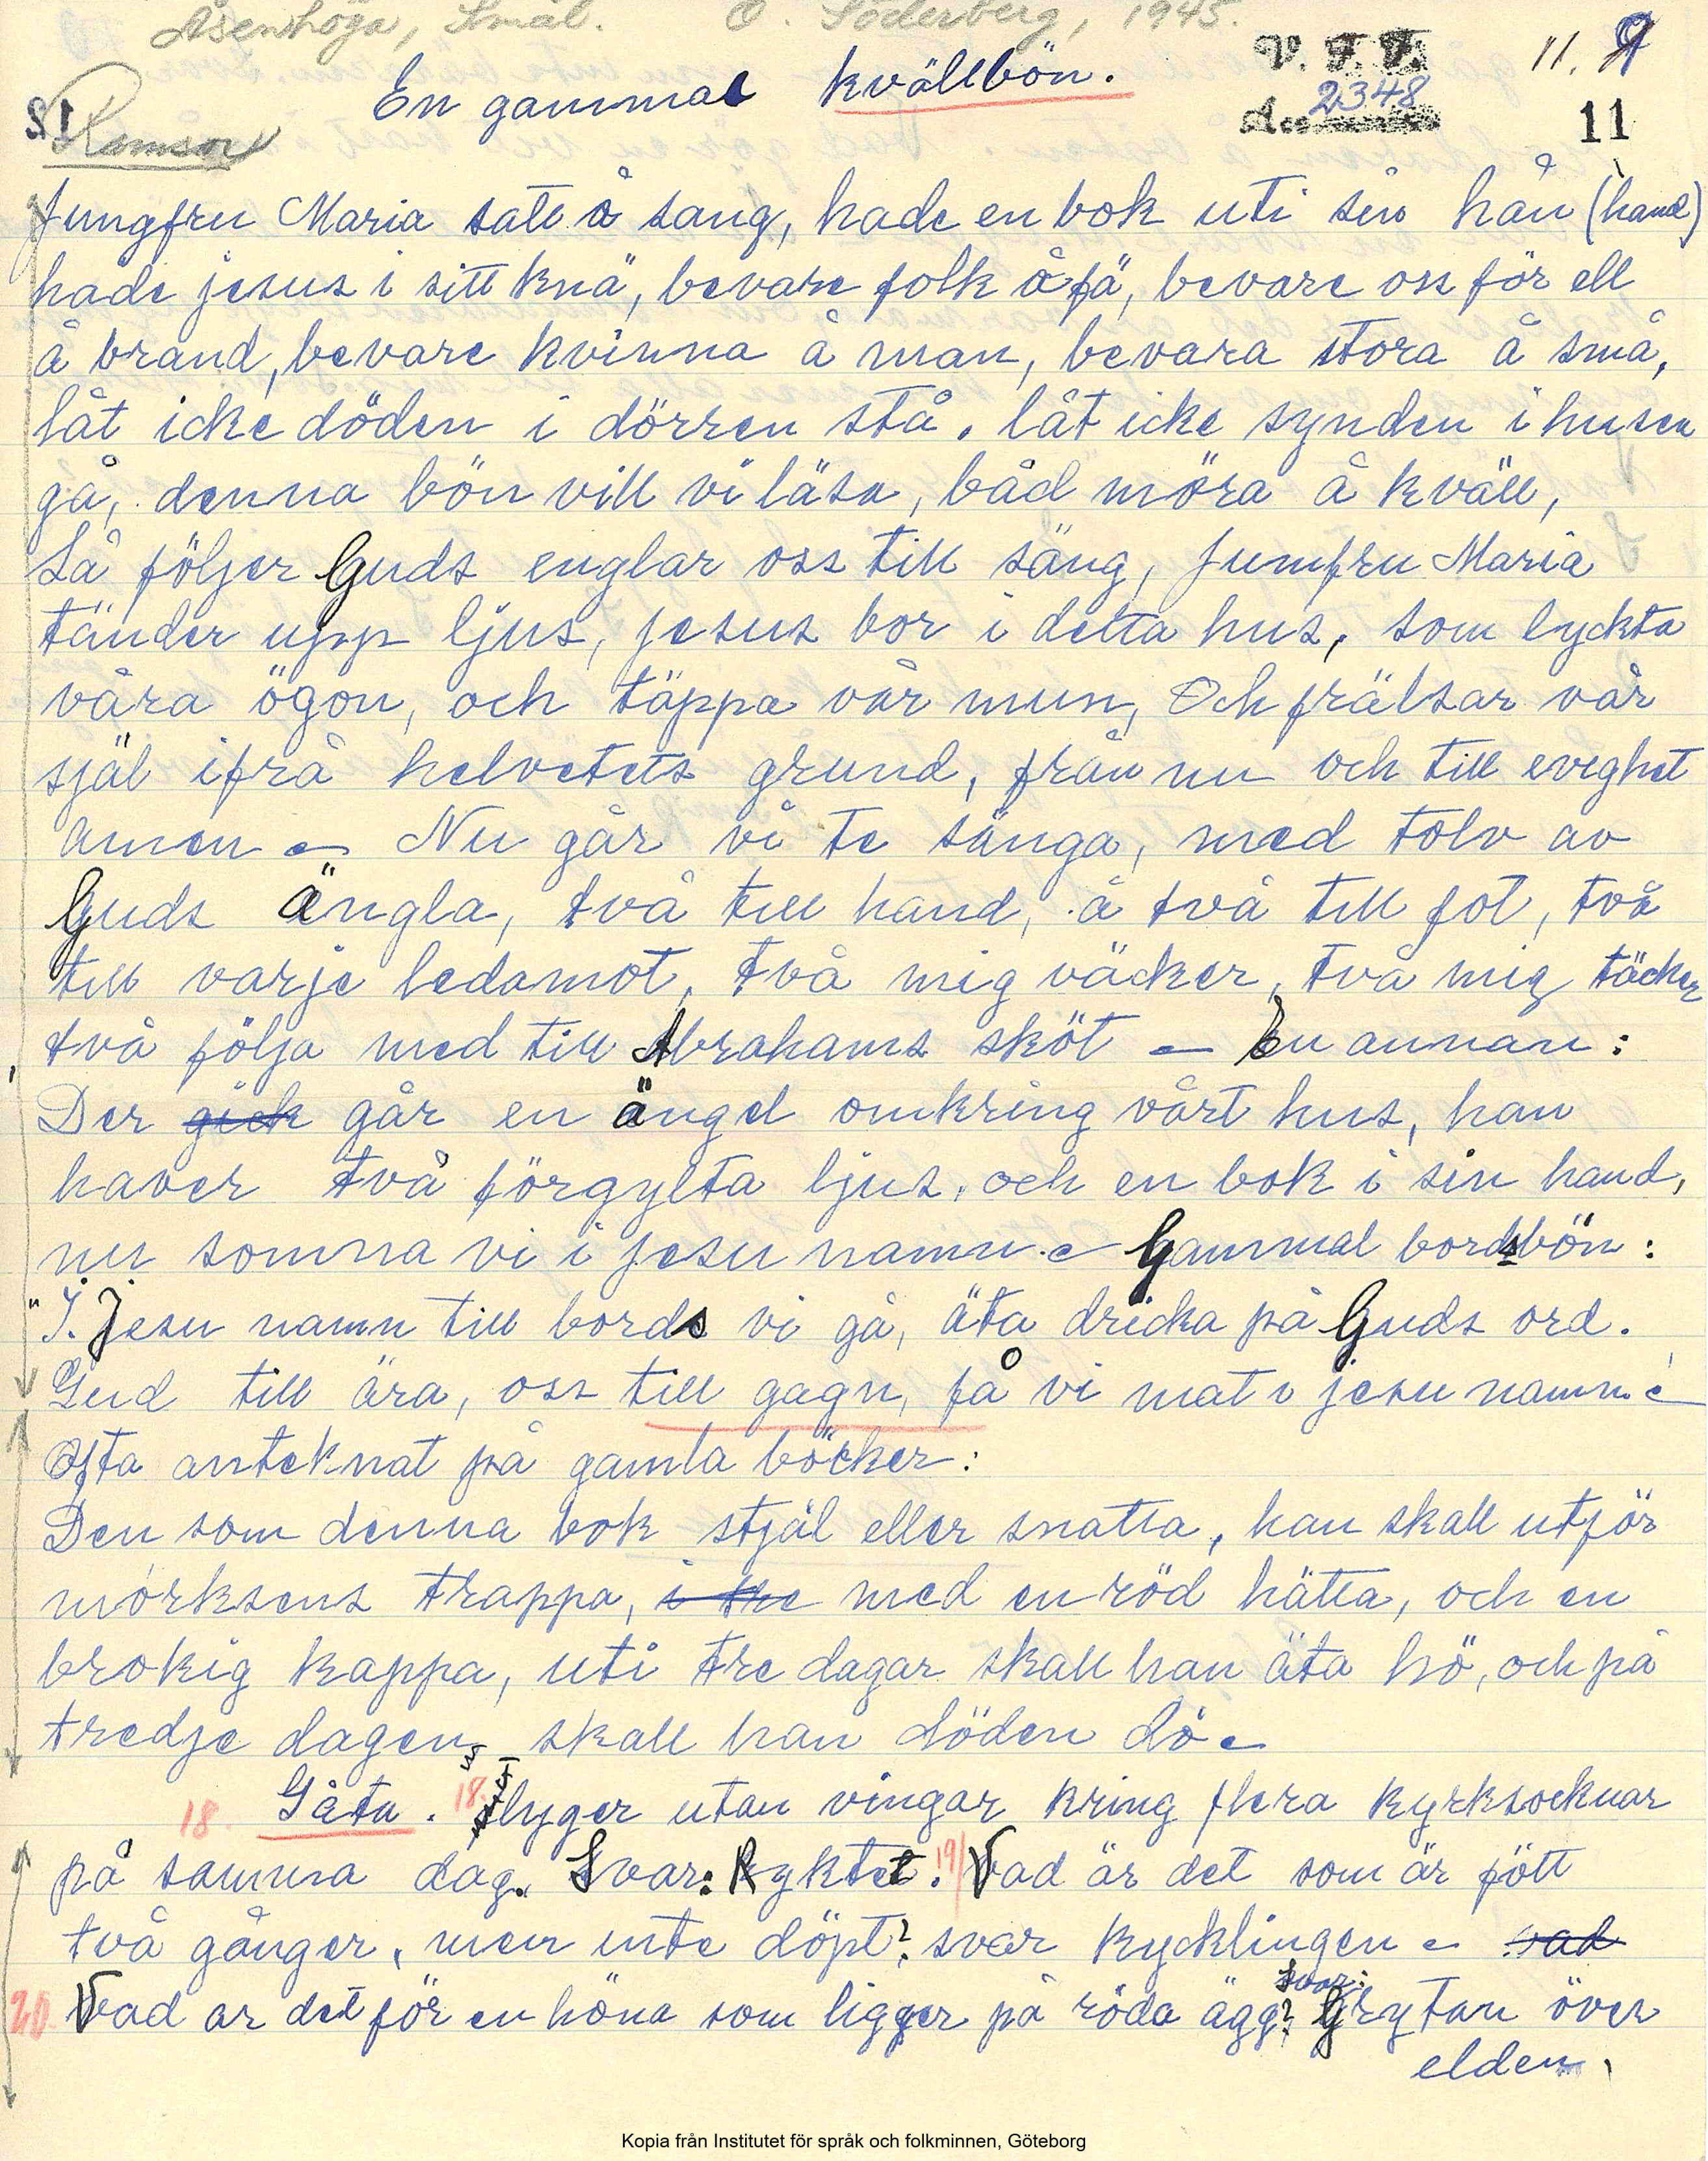 Åsenhöga, Smål. O. Söderberg, 1945.
V. F. F. 11. 9
En gammal kvällbön.
2348
11
Ramsor
Jungfru Maria satt å sang, hade en bok uti sin hån (hand)
hade jesus i sitt knä, bevare folk å fä, bevare oss för ell
å brand, bevare kvinna å man, bevara stora å små,
låt icke döden i dörren stå. låt icke synden i husen
gå, denna bön vill vi läsa, båd möra å kväll,
Så följer Guds englar oss till säng, Jumfru Maria
tänder upp ljus, jesus bor i detta hus, som lyckta
våra ögon, och täppa vår mun, Och frälsar vår
själ ifrå helvetets grund, från nu och till eveghet
amen – Nu går vi te sänga, med tolv av
Guds Ängla, två till hand, å två till fot, två
till varje ledamot, två mig väcker, två mig täcker
två följa med till Abrahams sköt – En annan:
Der gick går en ängel omkring vårt hus, han
haver två förgylta ljus, och en bok i sin hand,
nu somna vi i jesu namn – Gammal bordsbön:
"I. Jesu namn till bords vi gå, äta dricka på Guds ord.
Gud till ära, oss till gagn, få vi mat i jesu namn –
Ofta anteknat på gamla böcker:
Den som denna bok stjäl eller snatta, han skall utför
mörksens trappa, i tre med en röd hätta, och en
brokig kappa, uti tre dagar skall han äta hö, och på
tredje dagen skall han döden dö –
18. Gåta. 18. flyger utan vingar kring flera kyrksocknar
på samma dag. Svar: Ryktet. 19/ Vad är det som är fött
två gånger, men inte döpt? svar kycklingen – vad
20 Vad ar det för en höna som ligger på röda ägg? Svar: Grytan över
elden.
Kopia från Institutet för språk och folkminnen, Göteborg